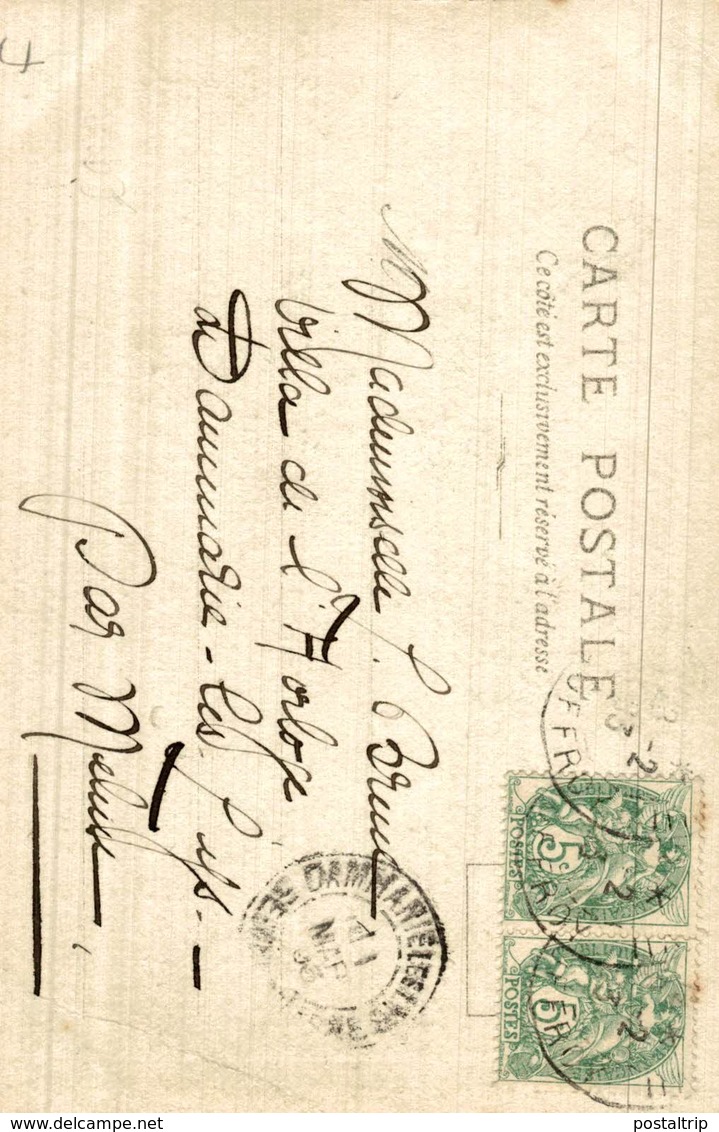 CARTE POSTALE
Ce côté est exclusivement réservé à l'adresse
Mademoiselle L. Brun
Villa de l'Horloge
à Dammarie-les-Lys.-
Par Melun.
5c
POSTES
5c
POSTES
DAMMARIE
11
MAR
© postaltrip